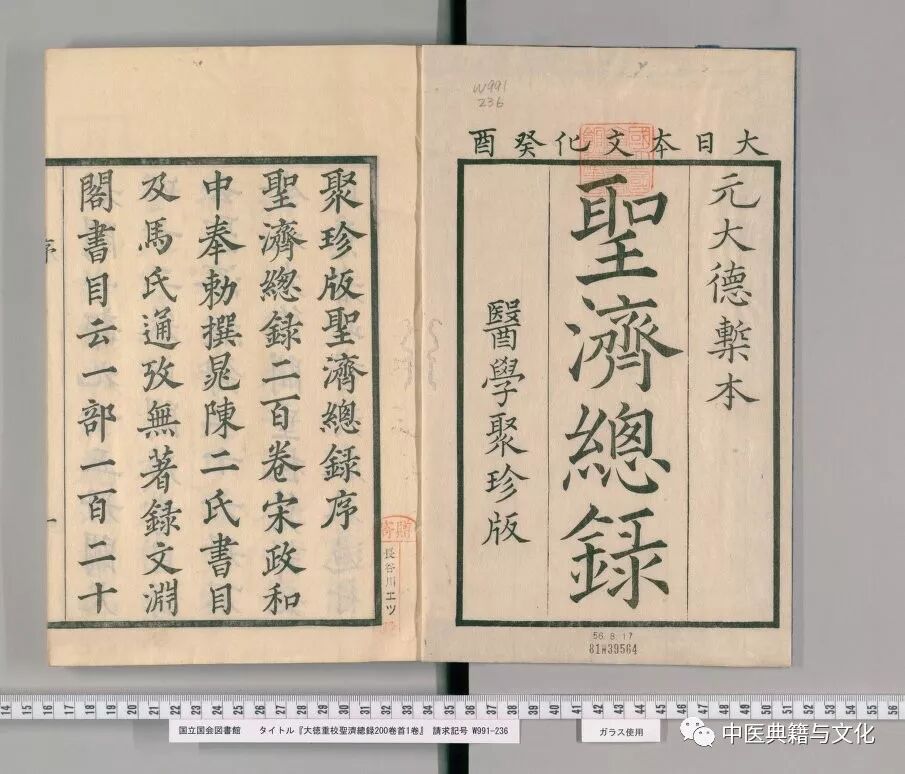 W991
236
大日本文化癸酉
元大德槧本
聖濟總録
醫學聚珍版
56.8.17
81W39564
聚珍版聖濟總録序
聖濟總録二百卷宋政和
中奉勅撰晁陳二氏書目
及馬氏通攷無著録文淵
閣書目云一部一百二十
序
一
寄贈
長谷川エツ
14 15 16 17 18 19 20 21 22 23 24 25 26 27 28 29 30 31 32 33 34 35 36 37 38 39 40 41 42 43 44 45 46 47 48 49 50 51 52 53 54 55 56
国立国会図書館 タイトル『大徳重校聖濟總録200巻首1巻』 請求記号 W991-236
ガラス使用
中医典籍与文化